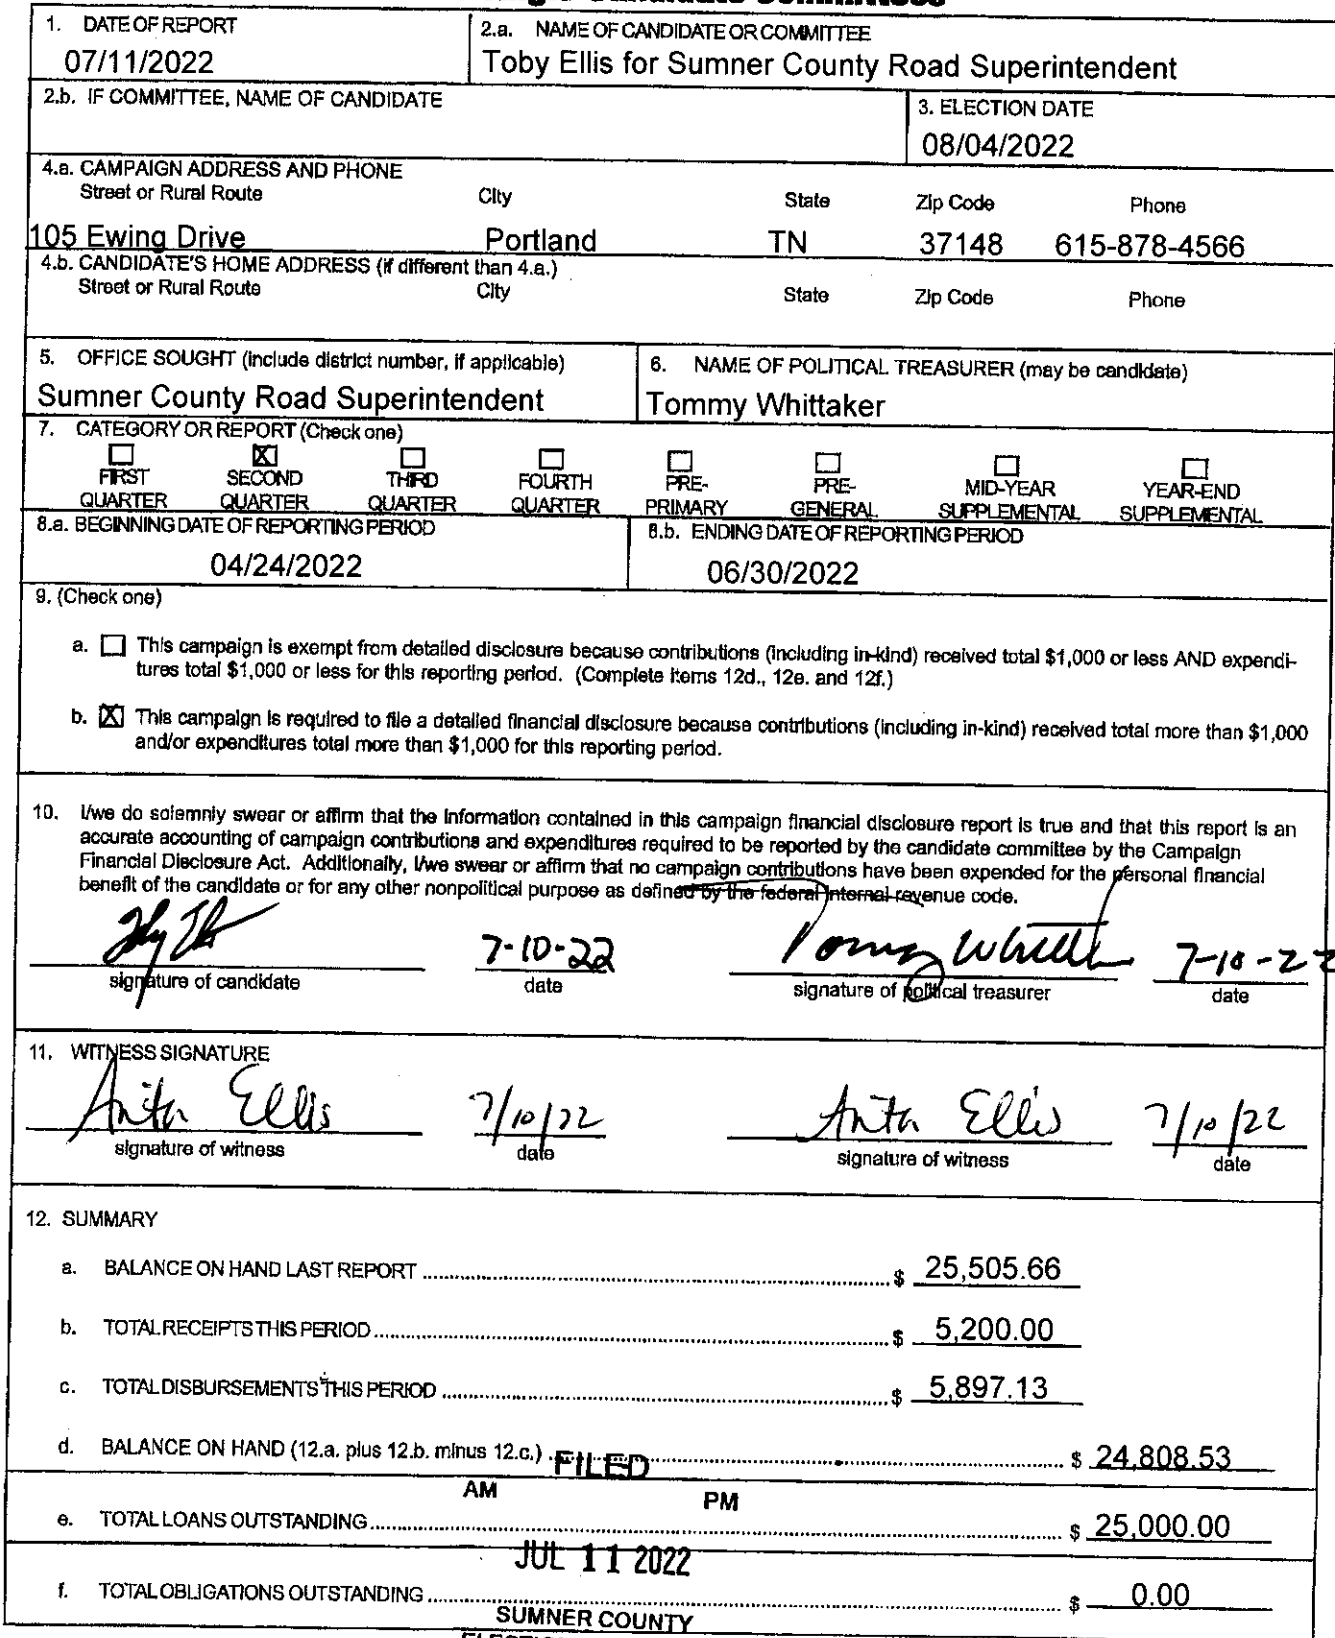 1. DATE OF REPORT
07/11/2022
2.a. NAME OF CANDIDATE OR COMMITTEE
Toby Ellis for Sumner County Road Superintendent
2.b. IF COMMITTEE, NAME OF CANDIDATE
3. ELECTION DATE
08/04/2022
4.a. CAMPAIGN ADDRESS AND PHONE
Street or Rural Route City State Zip Code Phone
105 Ewing Drive Portland TN 37148 615-878-4566
4.b. CANDIDATE'S HOME ADDRESS (if different than 4.a.)
Street or Rural Route City State Zip Code Phone
5. OFFICE SOUGHT (include district number, if applicable)
Sumner County Road Superintendent
6. NAME OF POLITICAL TREASURER (may be candidate)
Tommy Whittaker
7. CATEGORY OR REPORT (Check one)
☐ FIRST QUARTER
☒ SECOND QUARTER
☐ THIRD QUARTER
☐ FOURTH QUARTER
☐ PRE-PRIMARY
☐ PRE-GENERAL
☐ MID-YEAR SUPPLEMENTAL
☐ YEAR-END SUPPLEMENTAL
8.a. BEGINNING DATE OF REPORTING PERIOD
04/24/2022
8.b. ENDING DATE OF REPORTING PERIOD
06/30/2022
9. (Check one)
a. ☐ This campaign is exempt from detailed disclosure because contributions (including in-kind) received total $1,000 or less AND expendi-
tures total $1,000 or less for this reporting period. (Complete items 12d., 12e. and 12f.)
b. ☒ This campaign is required to file a detailed financial disclosure because contributions (including in-kind) received total more than $1,000
and/or expenditures total more than $1,000 for this reporting period.
10. I/we do solemnly swear or affirm that the information contained in this campaign financial disclosure report is true and that this report is an
accurate accounting of campaign contributions and expenditures required to be reported by the candidate committee by the Campaign
Financial Disclosure Act. Additionally, I/we swear or affirm that no campaign contributions have been expended for the personal financial
benefit of the candidate or for any other nonpolitical purpose as defined by the federal internal revenue code.
7-10-22 7-10-22
signature of candidate date signature of political treasurer date
11. WITNESS SIGNATURE
Anita Ellis 7/10/22 Anita Ellis 7/10/22
signature of witness date signature of witness date
12. SUMMARY
a. BALANCE ON HAND LAST REPORT $ 25,505.66
b. TOTAL RECEIPTS THIS PERIOD $ 5,200.00
c. TOTAL DISBURSEMENTS THIS PERIOD $ 5,897.13
d. BALANCE ON HAND (12.a. plus 12.b. minus 12.c.) $ 24,808.53
FILED
AM PM
e. TOTAL LOANS OUTSTANDING $ 25,000.00
JUL 11 2022
f. TOTAL OBLIGATIONS OUTSTANDING $ 0.00
SUMNER COUNTY